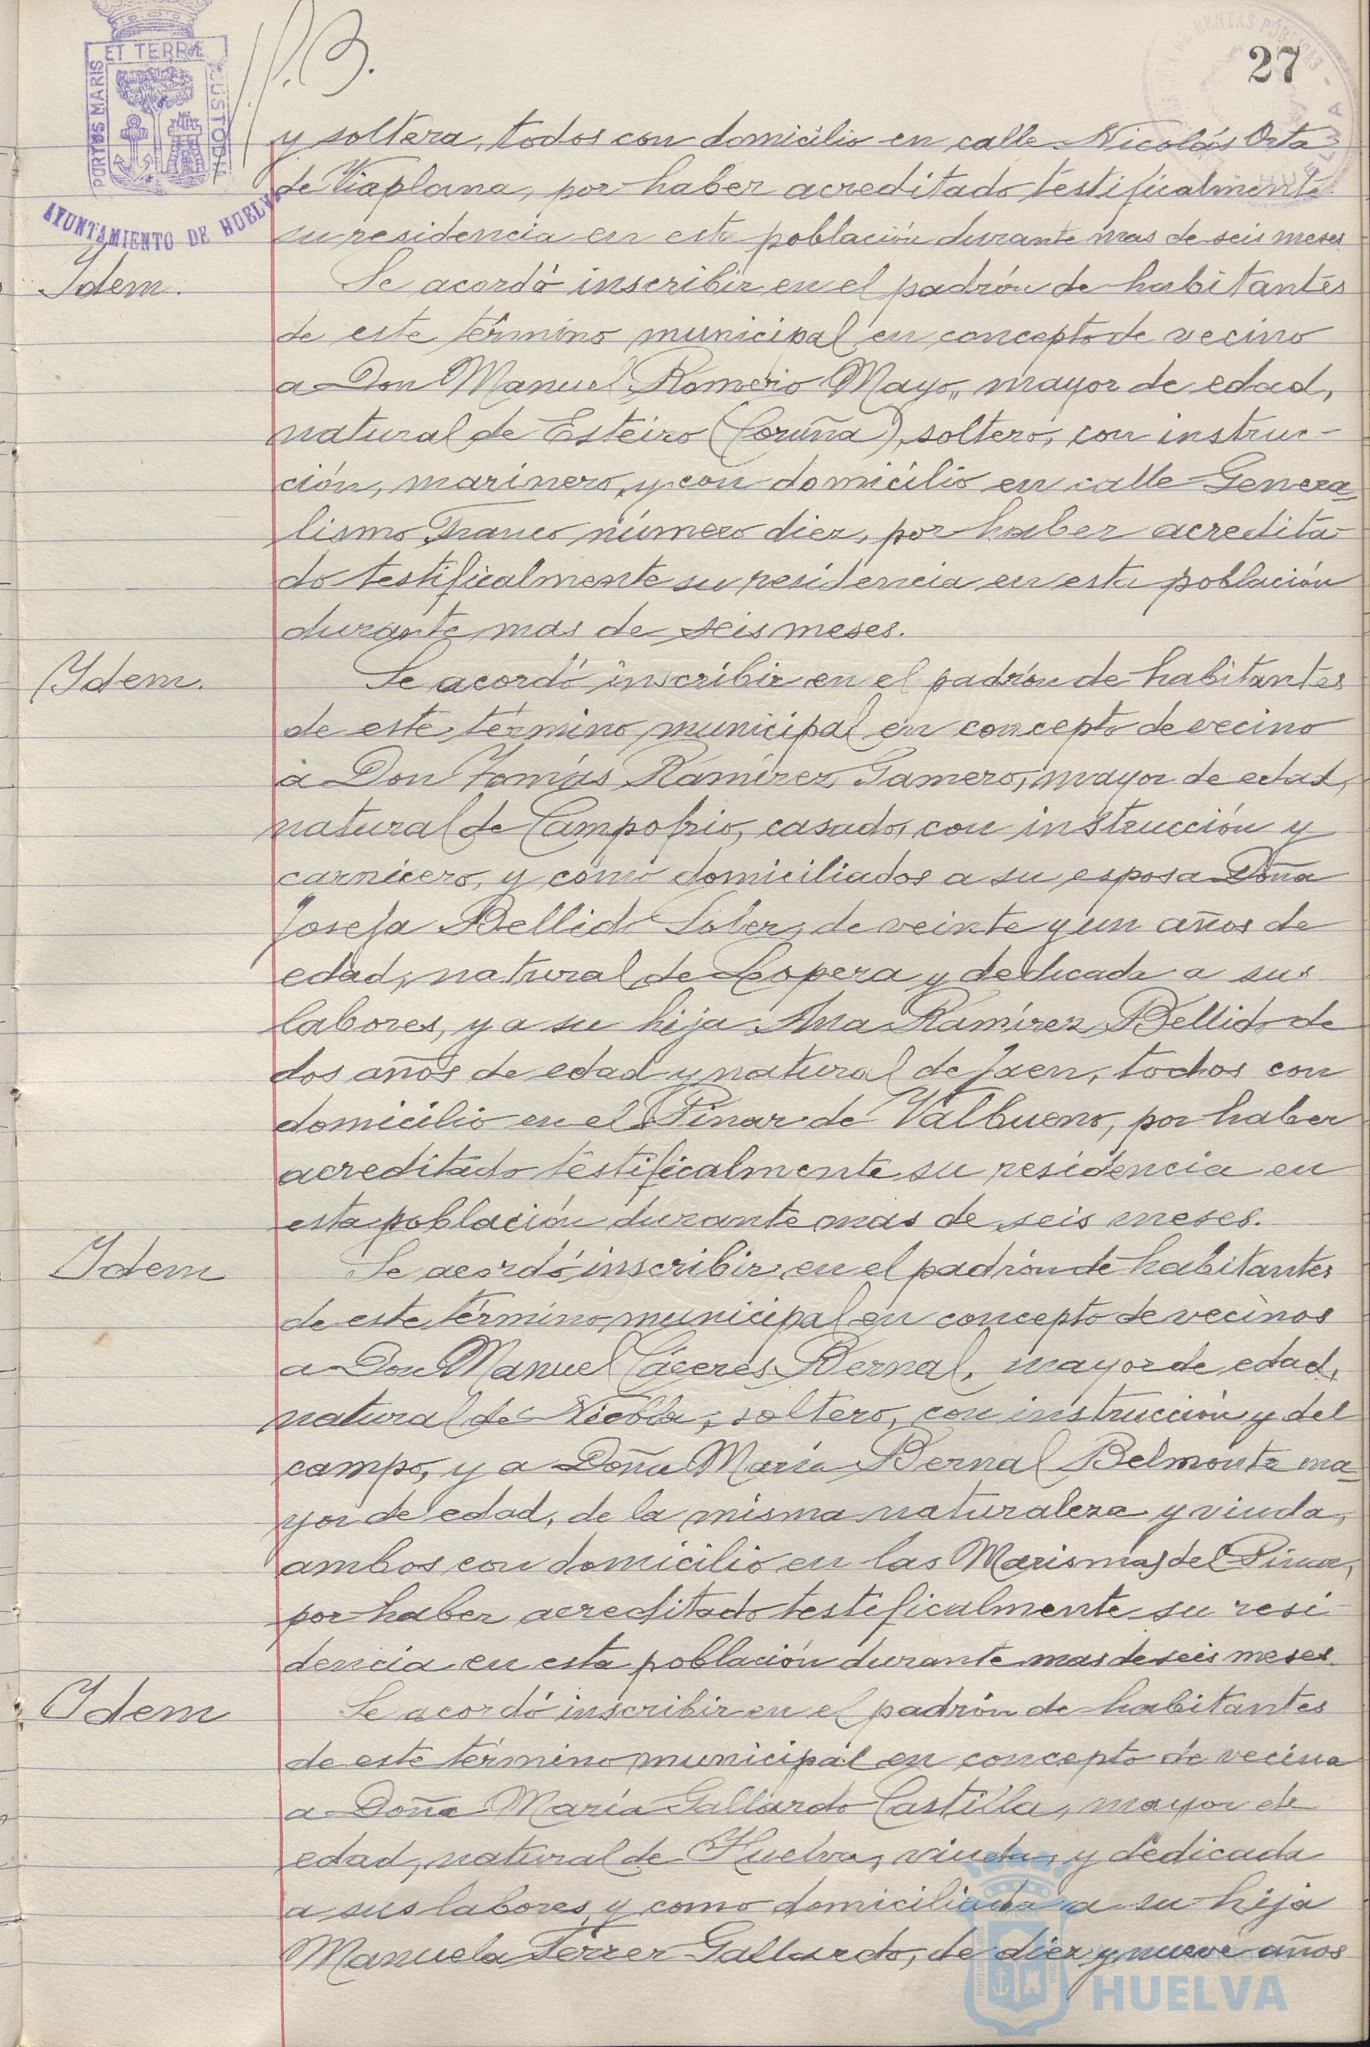 27
PORTUS MARIS ET TERRÆ CUSTODIA
AYUNTAMIENTO DE HUELVA
y soltera, todos con domicilio en calle Nicolás Orta
de Viaplana, por haber acreditado testificalmente
su residencia en esta población durante mas de seis meses
Idem. Se acordó inscribir en el padrón de habitantes
de este término municipal en concepto de vecino
a Don Manuel Romero Mayo, mayor de edad,
natural de Esteiro (Coruña), soltero, con instruc-
ción, marinero, y con domicilio en calle Genera-
lismo Franco número diez, por haber acredita-
do testificalmente su residencia en esta población
durante mas de seis meses.
Idem. Se acordó inscribir en el padrón de habitantes
de este término municipal en concepto de vecino
a Don Tomás Ramírez Gamero, mayor de edad,
natural de Campofrio, casado, con instrucción y
carnicero, y como domiciliados a su esposa Doña
Josefa Bellido de veinte y un años de
edad, natural de Lopera y dedicada a sus
labores, y a su hija Ana Ramírez Bellido de
dos años de edad y natural de Jaen, todos con
domicilio en el Pinar de Valbueno, por haber
acreditado testificalmente su residencia en
esta población durante mas de seis meses.
Idem Se acordó inscribir en el padrón de habitantes
de este término municipal en concepto de vecinos
a Don Manuel Cáceres Bernal, mayor de edad,
natural de Niebla, soltero, con instrucción y del
campo, y a Doña María Bernal Belmonte ma-
yor de edad, de la misma naturaleza y viuda,
ambos con domicilio en las Marismas del Pinar,
por haber acreditado testificalmente su resi-
dencia en esta población durante mas de seis meses.
Idem Se acordó inscribir en el padrón de habitantes
de este término municipal en concepto de vecina
a Doña María Gallardo Castilla, mayor de
edad, natural de Huelva, viuda, y dedicada
a sus labores, y como domiciliada a su hija
Manuela Ferrer Gallardo, de diez y nueve años
HUELVA